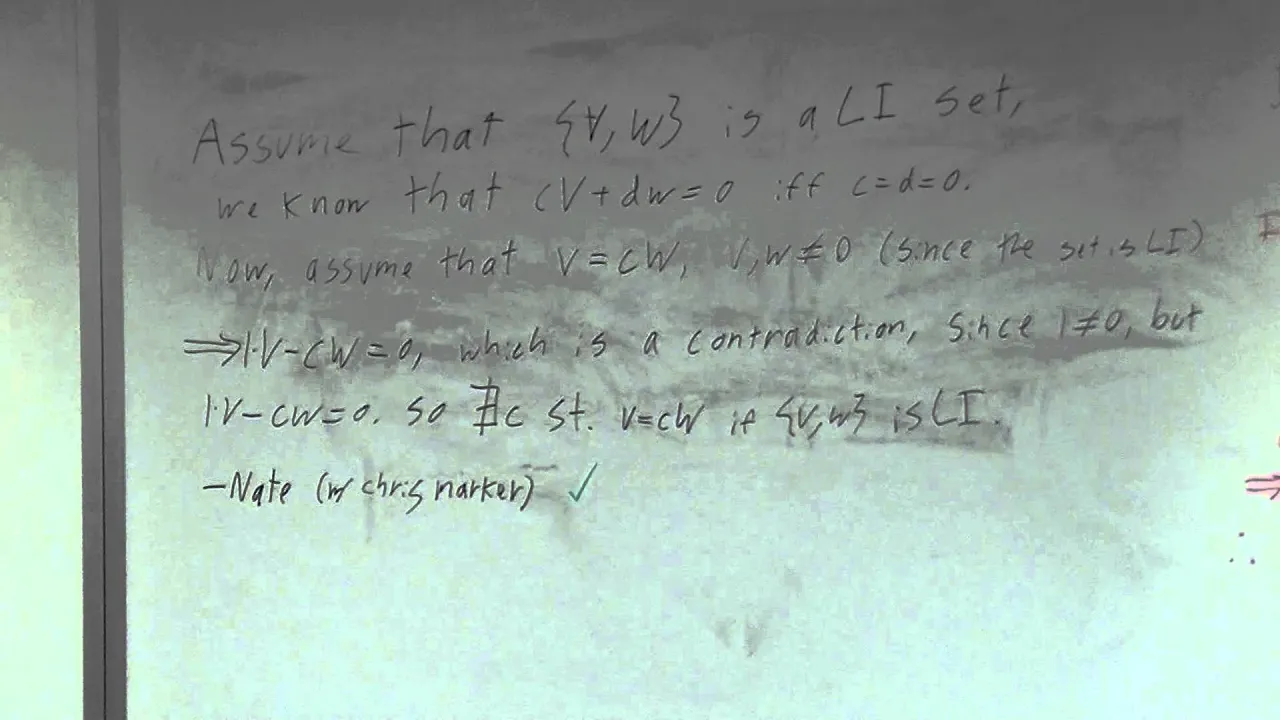 Assume that {V, W} is a LI set,
we know that cV + dw = 0 iff c = d = 0.
Now, assume that V = CW, V, W ≠ 0 (since the set is LI)
⇒ 1·V − CW = 0, which is a contradiction, since 1 ≠ 0, but
1·V − CW = 0. so ∄c st. V = cW if {V, W} is LI.
− Nate (w/ chris marker) ✓
⇒
∴